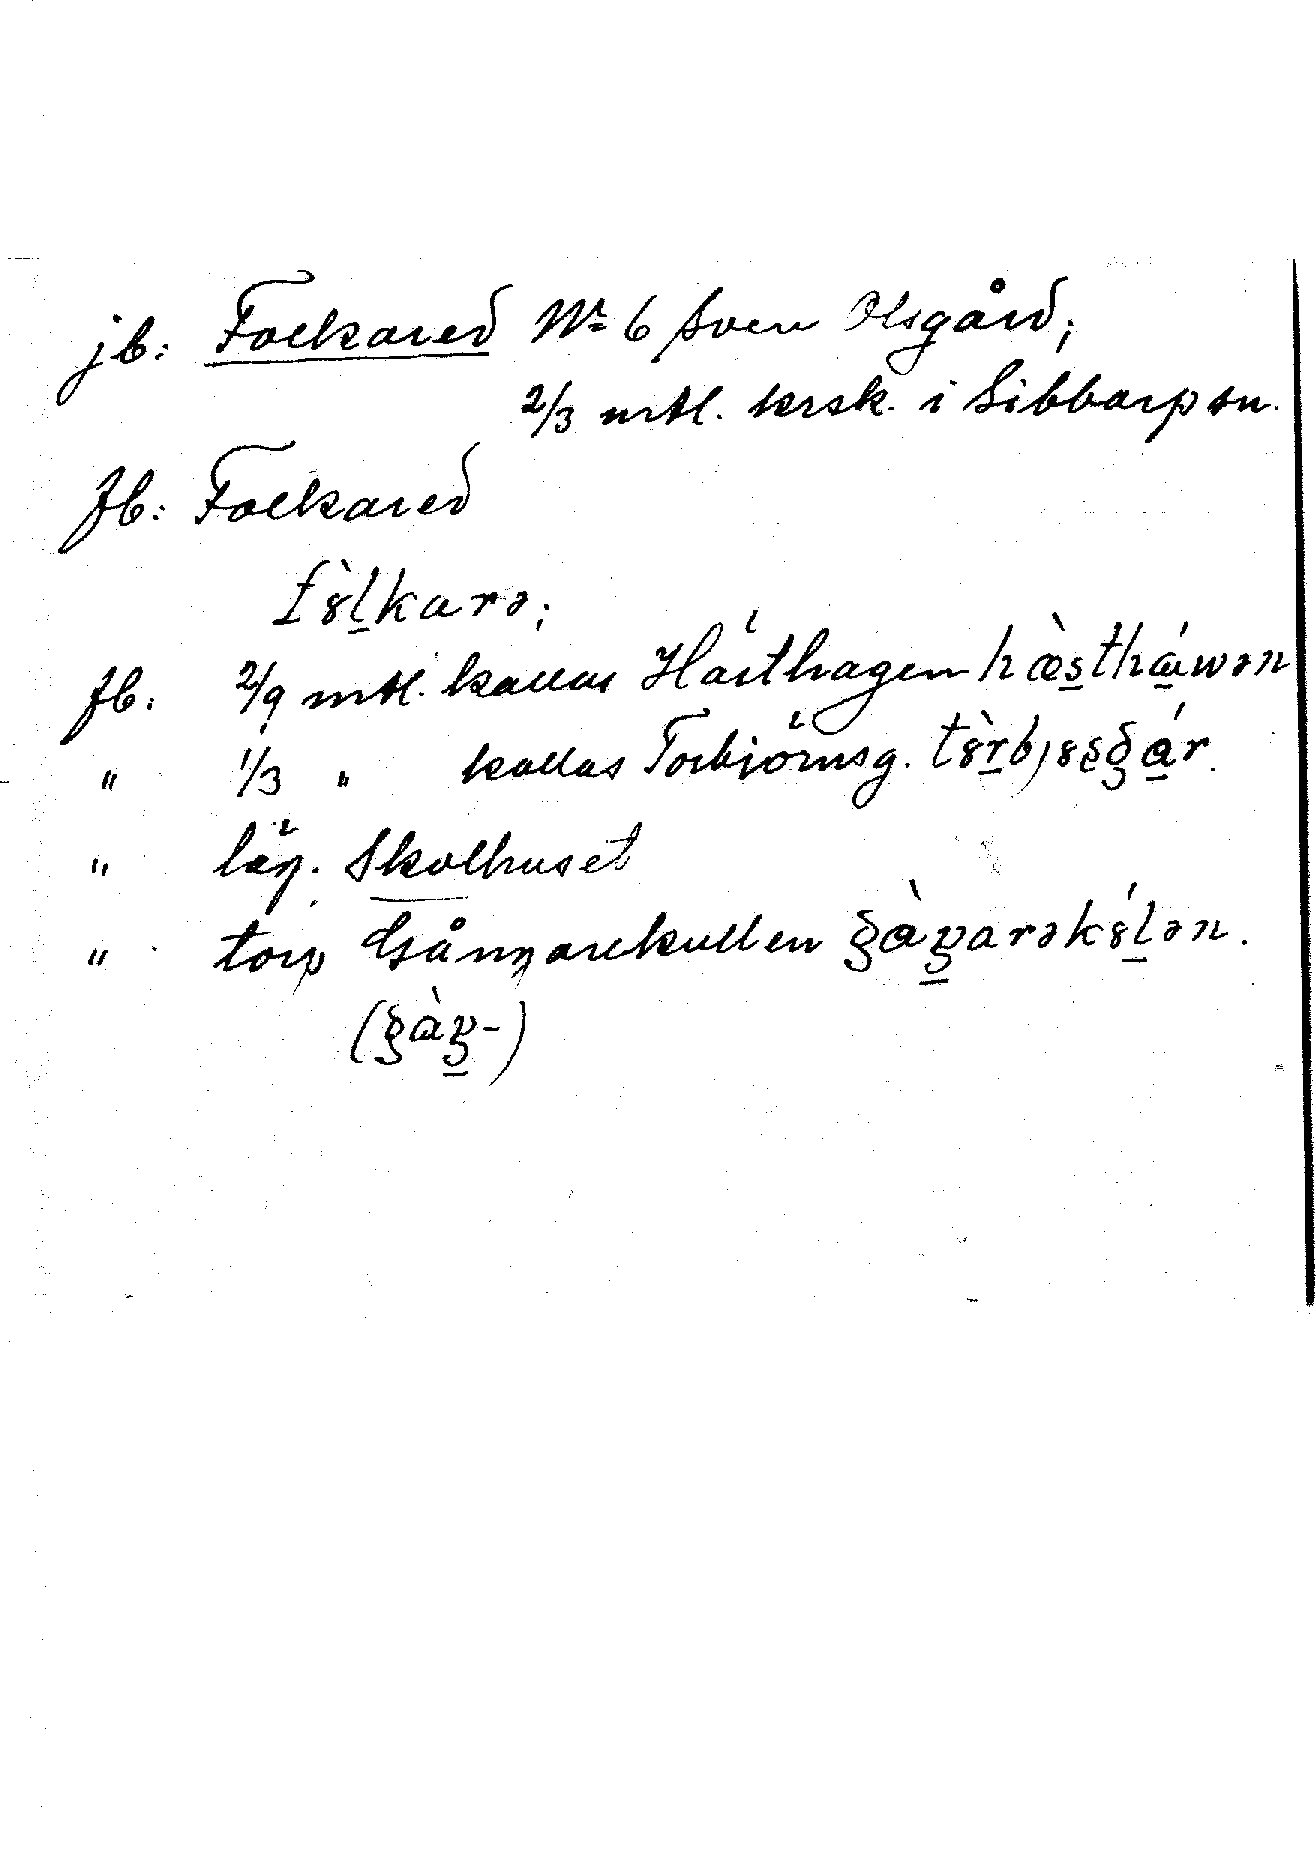 jb: Folkared No 6 Sven Olsgård;
2/3 mtl. krsk. i Sibbarp sn.
fb: Folkared
fȣ̀l̲karə;
fb: 2/9 mtl. kallas Hästhagen hæ̀s̲thá̲wən
" 1/3 " kallas Torbjörnsg.
" läg. Skolhuset
" torp Gångarekullen